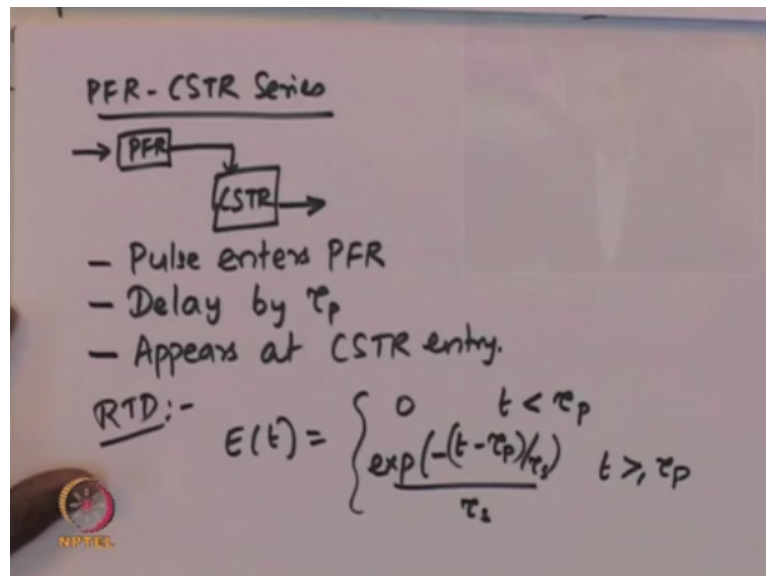 PFR-CSTR Series
PFR
CSTR
- Pulse enters PFR
- Delay by τp
- Appears at CSTR entry.
RTD:-
E(t) = { 0 t < τp
exp(-(t-τp)/τs) / τs t ≥ τp
NPTEL